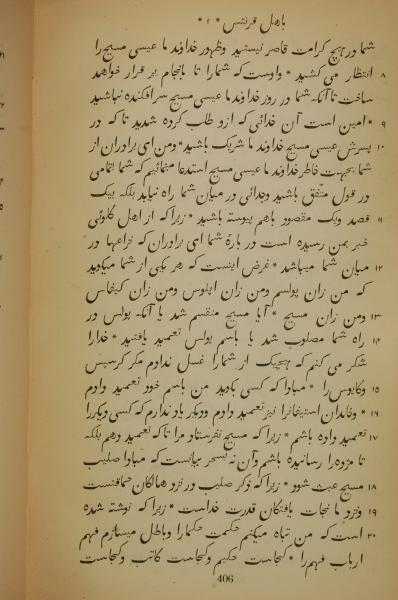 باهل قرنتس * ١ *
شما در هیچ کرامت قاصر نیستید وظهور خداوند ما عیسی مسیح را
٨ انتظار می کشید * واوست که شما را تا بانجام بر قرار خواهد
ساخت تا آنکه شما در روز خداوند ما عیسی مسیح سرافکنده نباشید
٩ * امین است آن خدائی که ازو طلب کرده شدید تا که در
١٠ پسرش عیسی مسیح خداوند ما شریک باشید * ومن ای برادران از
شما بجهت خاطر خداوند ما عیسی مسیح استدعا مینمائیم که شما تمامی
در قول متفق باشید وجدائی در میان شما راه نیابد بلکه بیک
١١ قصد ویک مقصود باهم پیوسته باشید * زیرا که از اهل کلوئی
خبر بمن رسیده است در بارهٔ شما ای برادران که نزاعها در
١٢ میان شما میباشد * غرض اینست که هر یکی از شما میگوید
که من زان پولسم ومن زان اپلوس ومن زان کیفاس
١٣ ومن زان مسیح * آیا مسیح منقسم شد یا آنکه پولس در
١٤ راه شما مصلوب شد یا باسم پولس تعمید یافتید * خدارا
شکر می کنم که هیچیک از شما را غسل ندادم مگر کرسپس
١٥ وکایوس را * مبادا که کسی گوید من باسم خود تعمید دادم
١٦ * وخاندان استیفانرا نیز تعمید دادم ودیگر یاد ندارم که کسی دیگررا
١٧ تعمید داده باشم * زیرا که مسیح نفرستاد مرا تا که تعمید دهم بلکه
تا مژده را رسانیده باشم وآن نه بسحر بیانیست که مبادا صلیب
١٨ مسیح عبث شود * زیرا که ذکر صلیب در نزد هالکان حماقتست
١٩ ونزد ما نجات یافتگان قدرت خداست * زیرا که نوشته شده
٢٠ است که من تباه میکنم حکمت حکما را وباطل میسازم فهم
ارباب فهم را * کجاست حکیم وکجاست کاتب وکجاست
406